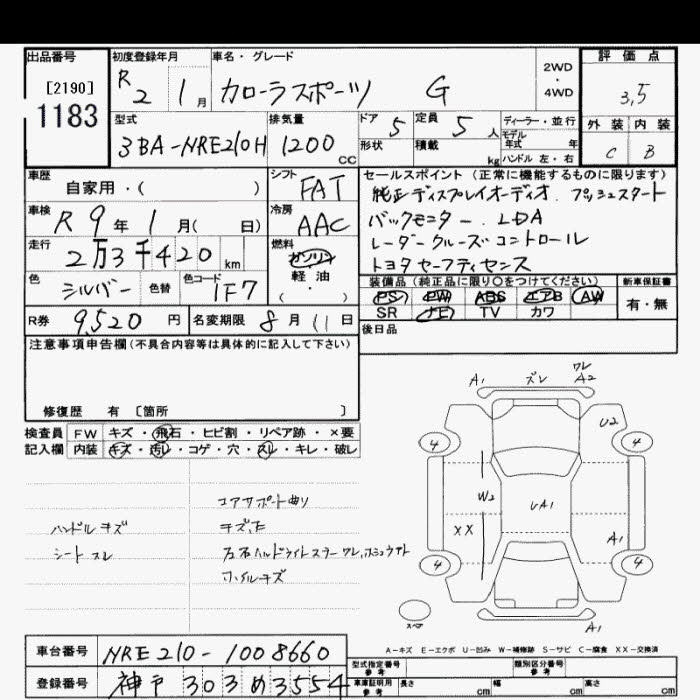 出品番号 初度登録年月 車名・グレード 評価点
[2190]
1183
R 2 1月 カローラスポーツ G 2WD・4WD 3,5
型式 排気量 ドア 定員 ディーラー・並行 外装 内装
3BA-NRE210H 1200 CC 5 5人 モデル年式 年 C B
形状 積載 kg ハンドル 左・右
車歴 シフト セールスポイント (正常に機能するものに限ります)
自家用・( ) FAT 純正ディスプレイオーディオ. プッシュスタート
車検 冷房 バックモニター. LDA
R 9年 1月( 日) AAC レーダークルーズコントロール
走行 燃料 トヨタセーフティセンス
2万3千420km ガソリン 軽・油 ( ・ )
装備品 (純正品に限り○をつけてください) 新車保証書
色 シルバー 色替 色コード 1F7 PS PW ABS エアB AW 有・無
SR ナビ TV カワ
R券 9,520円 名変期限 8月11日
後日品
注意事項申告欄(不具合内容等は具体的に記入して下さい)
修復歴 有 [箇所 ]
検査員 FW キズ・飛石・ヒビ割・リペア跡・×要
記入欄 内装 キズ・汚レ・コゲ・穴・スレ・キレ・破レ
コアサポート曲り
ハンドルキズ
シートスレ
ホイルキズ
A1 ズレ ワレ A2
U2
4 4
W2 UA1
XX A1
4 4
スペア A1
A-キズ E-エクボ U-凹み W-補修跡 S-サビ C-腐食 XX-交換済
車台番号 NRE210-1008660
登録番号 神戸 303 め 3554
型式指定番号 参考 類別区分番号 参考
車庫証明用 参考 長さ cm 幅 cm 高さ cm